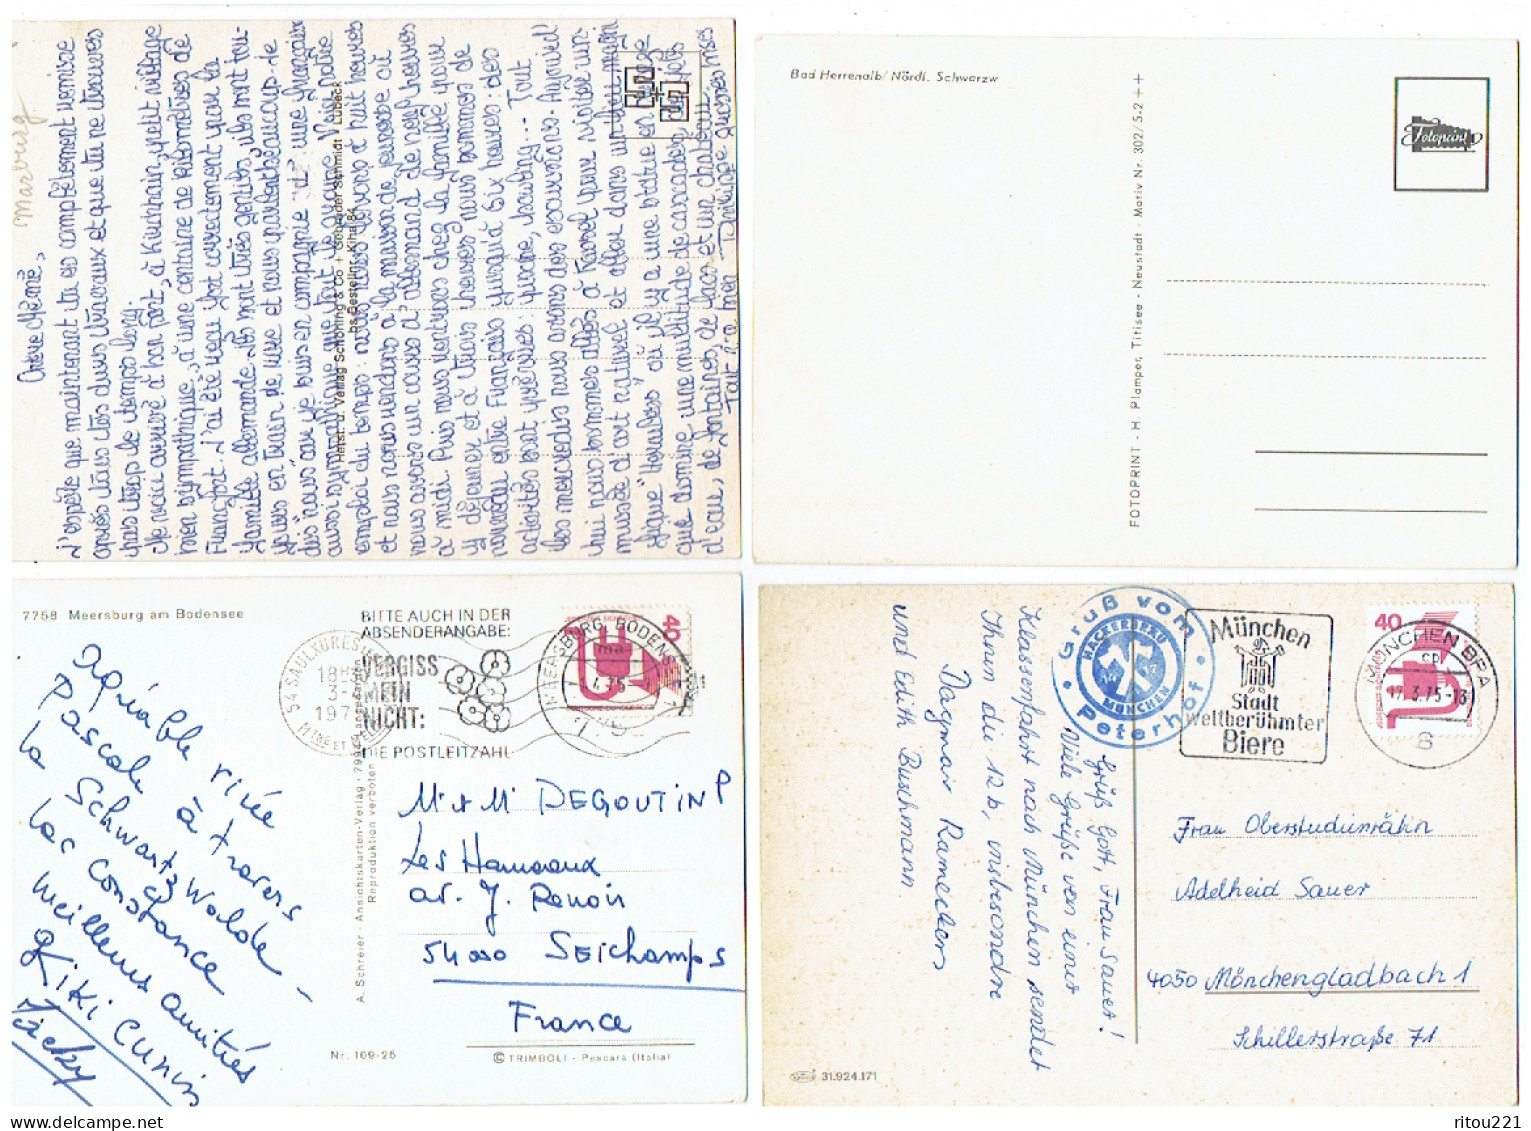 Marburg
Chère Mémé,
J'espère que maintenant tu es complètement remise
après tous tes durs travaux et que tu ne trouves
pas trop le temps long.
Me voici arrivé à bon port, à Kirchhain, petit village
bien sympathique, à une centaine de kilomètres de
Francfort. J'ai été reçu fort correctement par la
famille allemande. Ils sont très gentils, ils sont tou-
jours en train de rire et nous parlent beaucoup. Je
dis "nous" car je suis en compagnie de : une français
aussi sympathique que tout le monde. Voici notre
emploi du temps : nous nous levons à huit heures
et nous nous rendons à la maison de jeunesse où
nous avons un cours d'allemand de neuf heures
à midi. Puis nous rentrons chez la famille pour
y déjeuner et à trois heures nous sommes de
nouveau entre Français jusqu'à six heures : des
activités sont prévues : piscine, bowling... Tout
les mercredis nous avons des excursions. Aujourd'
hui nous sommes allés à Kassel pour visiter un
musée d'art naturel et aller dans un lieu magni
fique "Hercules" où il y a une statue en
que domine une multitude de cascades, de jets
d'eau, de fontaines, de lacs et un château.
Tout r-a men Philippe grosses bises
Herst. u. Verlag Schöning & Co + Gebrüder Schmidt Lübeck
bs Bestellnr. Kihai 84
Bad Herrenalb/ Nördl. Schwarzw
Fotoprint
FOTOPRINT - H. Plamper, Titisee - Neustadt - Motiv Nr. 302/ 5.2 + +
7758 Meersburg am Bodensee
BITTE AUCH IN DER
ABSENDERANGABE:
VERGISS
MEIN
NICHT:
DIE POSTLEITZAHL
54 SAULXURES
18H30
3-
197
MEERSBURG BODENSEE
ma
4.75
40
Agréable virée
Pascale à travers
la Schwartz Walde -
lac Constance
Meilleures amitiés
Kiki CUNIN
Jacky
M. & M. DEGOUTIN P
Les Hameaux
av. J. Renoir
54000 SEICHAMPS
France
A. Schreier - Ansichtskarten-Verlag - 7994 Langenargen
Reproduktion verboten
Nr. 109-25
© TRIMBOLI - Pescara (Italia)
Gruß vom
HACKERBRÄU
MÜNCHEN
Peterhof
München
Stadt
weltberühmter
Biere
MÜNCHEN BPA
cp
17.3.75-13
8
40
Grüß Gott, Frau Sauer!
Viele Grüße von einer
Klassenfahrt nach München sendet
Ihnen die 12b, insbesondre
Dagmar Rameckers
und Edith Buschmann
Frau Oberstudienrätin
Adelheid Sauer
4050 Mönchengladbach 1
Schillerstraße 71
31.924.171
ritou221